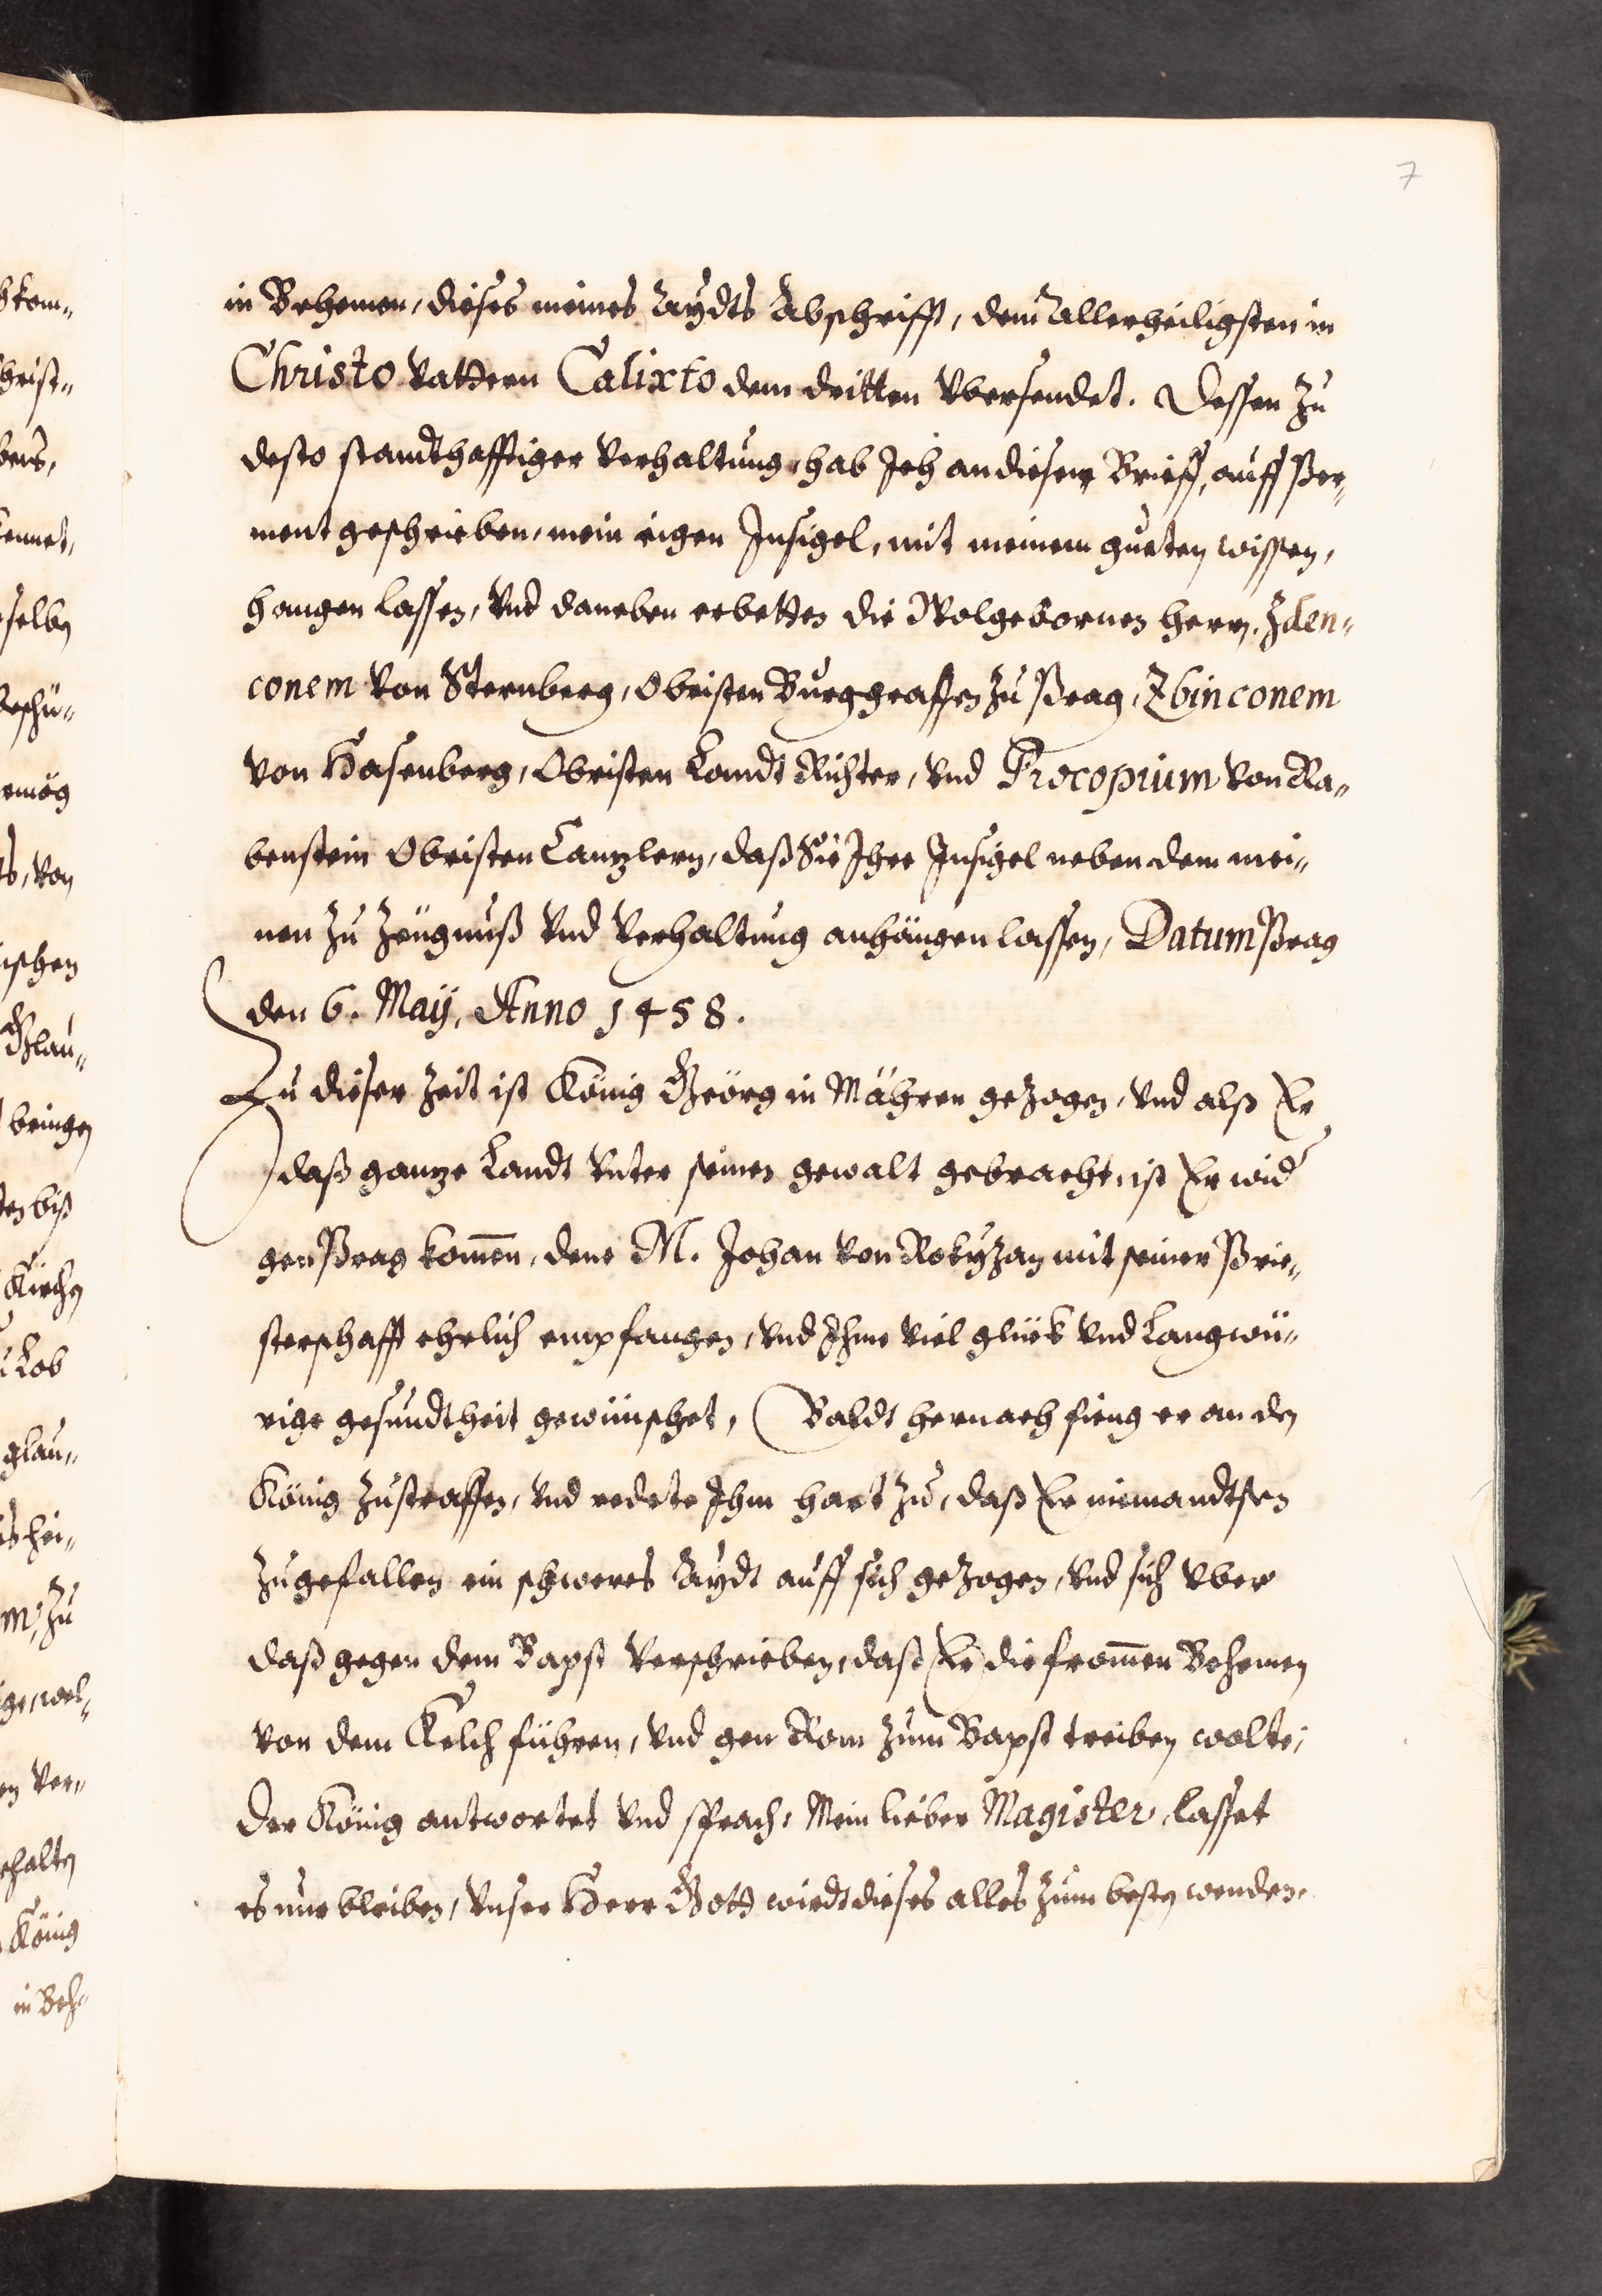 7
in Behemen, dieses meines Aydts Abschrifft, dem Allerheiligsten in
Christo vattern Calixto dem dritten vbersendet. Dessen zu
desto standthafftiger verhaltung, hab Ich an diesem Brieff, auff Per„
ment geschrieben, mein eigen Insigel, mit meinem gueten wissen,
hangen lassen, vnd daneben erbetten die Wolgebornen herrn, Zden„
conem von Sternberg, Obristen Burggraffen zu Prag, Zbinconem
von Hasenberg, Obristen Landt Richter, vnd Procopium von Ra„
benstein Obristen Cantzlern, daß Sie Ihre Insigel neben dem mei„
nen zu Zeugnuß vnd verhaltung anhängen lassen, Datum Prag
den 6. Maÿ, Anno 1458.
Zu dieser Zeit ist König Geörg in Mähren gezogen, vnd alß Er
daß gantze Landt vnter seinen gewalt gebracht, ist Er wid
gen Prag kom̄en, dene M. Johan von Rokyzan mit seiner Prie„
sterschafft ehrlich empfangen, vnd Ihme viel glück vnd Langwü„
rige gesundtheit gewünschet, Baldt hernach fieng er an den
König zustraffen, vnd redete Ihm hart zu, daß Er niemandtsen
zugefallen ein schweres Aydt auff sich gezogen, vnd sich vber
daß gegen dem Bapst verschrieben, daß Er die from̄en Behemen
von dem Kelch führen, vnd gen Rom zum Bapst treiben wolte;
Der König antwortet vnd sprach, Mein lieber Magister, lasset
es nur bleiben, vnser Herr Gott wirdt dieses alles zum besten wenden.